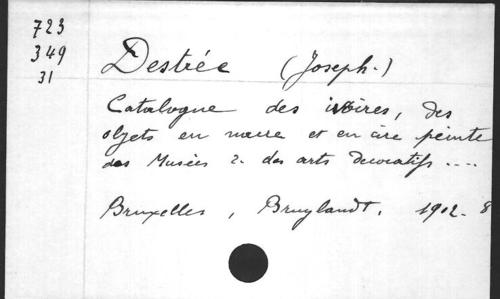 723
349
31
Destrée (Joseph.)
Catalogue des ivoires, des
objets en nacre et en cire peinte
des Musées r. des arts decoratifs ....
Bruxelles, Bruylandt, 1902. 8